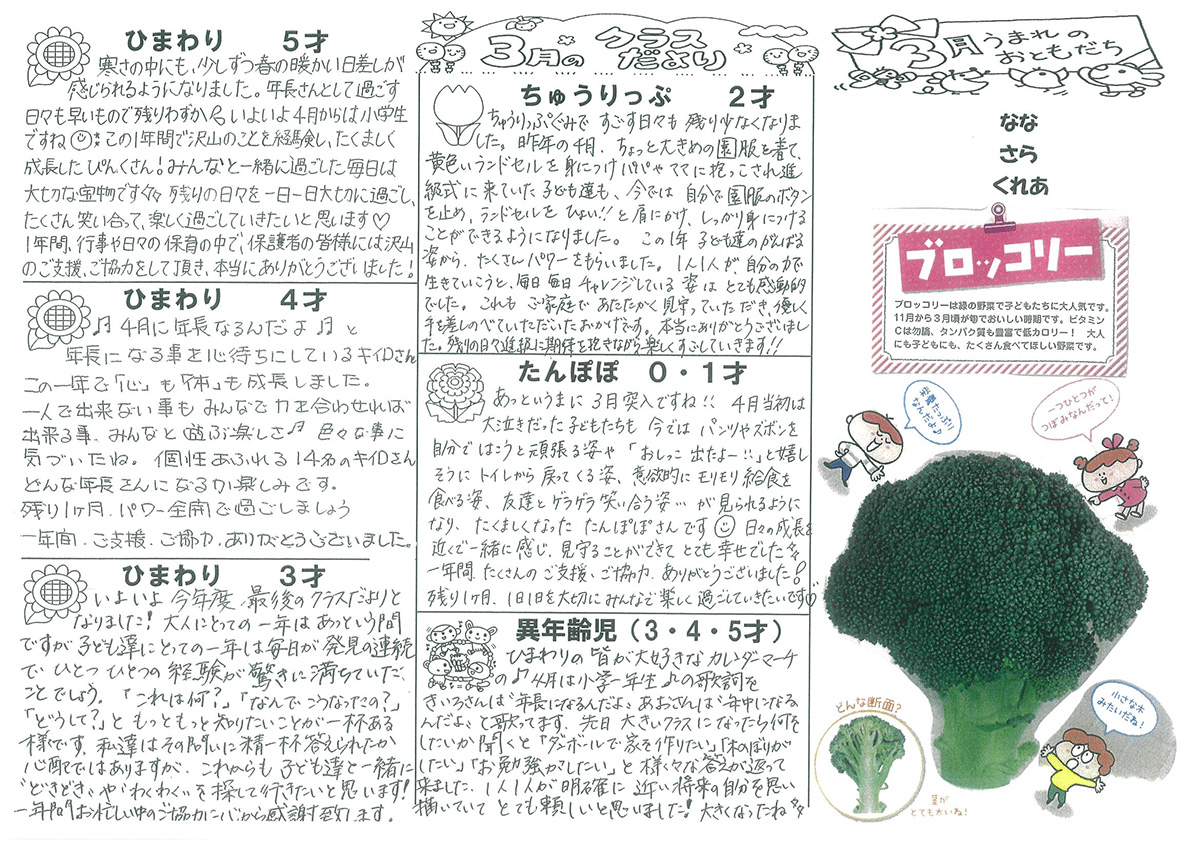 ひまわり　5才
寒さの中にも、少しずつ春の暖かい日差しが
感じられるようになりました。年長さんとして過ごす
日々も早いもので残りわずか いよいよ4月からは小学生
ですね この1年間で沢山のことを経験し、たくましく
成長したぴんくさん！みんなと一緒に過ごした毎日は
大切な宝物です 残りの日々を一日一日大切に過ごし、
たくさん笑い合って、楽しく過ごしていきたいと思います♡
1年間、行事や日々の保育の中で、保護者の皆様には沢山
のご支援、ご協力をして頂き、本当にありがとうございました！
ひまわり　4才
♫ 4月に年長なるんだよ ♫ と
年長になる事を心待ちにしているキイロさん
この一年で「心」も「体」も成長しました。
一人で出来ない事もみんなで力を合わせれば
出来る事、みんなと遊ぶ楽しさ♫ 色々な事に
気づいたね。個性あふれる14名のキイロさん
どんな年長さんになるか楽しみです。
残り1ヶ月、パワー全開で過ごしましょう
一年間、ご支援、ご協力、ありがとうございました。
ひまわり　3才
いよいよ今年度、最後のクラスだよりと
なりました！大人にとっての一年はあっという間
ですが子ども達にとっての一年は毎日が発見の連続
で、ひとつひとつの経験が驚きに満ちていた
ことでしょう。「これは何？」「なんでこうなったの？」
「どうして？」ともっともっと知りたいことが一杯ある
様です。私達はその問いに精一杯答えられたか
心配ではありますが、これからも子ども達と一緒に
“どきどき”や“わくわく”を探して行きたいと思います！
一年間お忙しい中のご協力に心から感謝致します。
3月の クラスだより
ちゅうりっぷ　2才
ちゅうりっぷぐみですごす日々も残り少なくなりま
した。昨年の4月、ちょっと大きめの園服を着て、
黄色いランドセルを身につけパパやママに抱っこされ進
級式に来ていた子ども達も、今では自分で園服のボタン
を止め、ランドセルをひょい!!と肩にかけ、しっかり身につける
ことができるようになりました。この1年子ども達のがんばる
姿から、たくさんパワーをもらいました。1人1人が自分の力で
生きていこうと、毎日毎日チャレンジしている姿はとても感動的
でした。これもご家庭であたたかく見守っていただき、優しく
手を差しのべていただいたおかげです。本当にありがとうございまし
た。残りの日々進級に期待を抱きながら楽しくすごしていきます!!
たんぽぽ　0・1才
あっというまに3月突入ですね!! 4月当初は
大泣きだった子どもたちも今ではパンツやズボンを
自分ではこうと頑張る姿や「おしっこ出たよー!!」と嬉し
そうにトイレから戻ってくる姿、意欲的にモリモリ給食を
食べる姿、友達とゲラゲラ笑い合う姿…が見られるように
なり、たくましくなったたんぽぽさんです 日々の成長を
近くで一緒に感じ、見守ることができてとても幸せでした
一年間、たくさんのご支援、ご協力、ありがとうございました！
残り1ヶ月、1日1日を大切にみんなで楽しく過ごしていきたいです♡
異年齢児（3・4・5才）
ひまわりの皆が大好きなカレンダーマーチ
の♪4月は小学一年生♪の歌詞を
きいろさんは“年長になるんだよ、あおさんは“年中になる
んだよ、と歌ってます。先日大きいクラスになったら何を
したいか聞くと「ダンボールで家を作りたい」「木のぼりが
したい」「お勉強がしたい」と様々な答えが返って
来ました。1人1人が明確に近い将来の自分を思い
描いていてとても頼しいと思いました！大きくなったね
3月うまれの
おともだち
なな
さら
くれあ
ブロッコリー
ブロッコリーは緑の野菜で子どもたちに大人気です。
11月から3月頃が旬でおいしい時期です。ビタミン
Cは勿論、タンパク質も豊富で低カロリー！ 大人
にも子どもにも、たくさん食べてほしい野菜です。
栄養たっぷり
なんだよ♪
一つひとつが
つぼみなんだって！
小さな木
みたいだね！
どんな断面？
茎が
とても太いね！